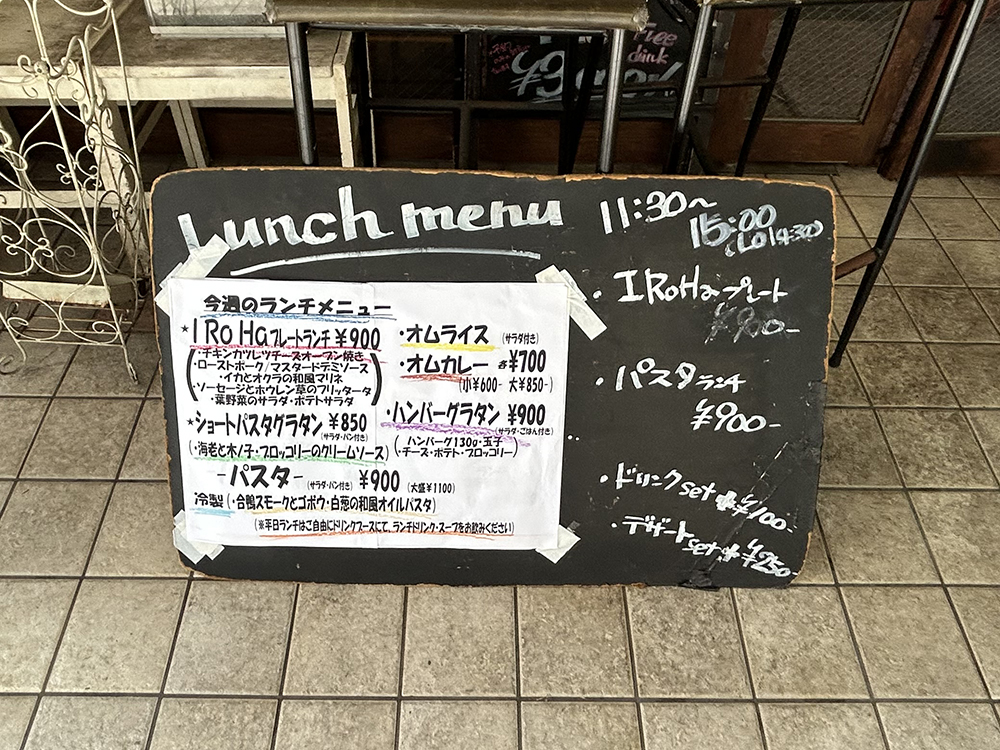 Free
drink
Lunch menu
11:30~
15:00
(LO 14:30)
今週のランチメニュー
★IRoHaプレートランチ ¥900
・チキンカツレツチーズオーブン焼き
・ローストポーク/マスタードデミソース
・イカとオクラの和風マリネ
・ソーセージとホウレン草のフリッタータ
・葉野菜のサラダ・ポテトサラダ
★ショートパスタグラタン ¥850
(サラダ・パン付き)
(・海老と木ノ子・ブロッコリーのクリームソース)
・オムライス (サラダ付き)
・オムカレー 各¥700
(小¥600- 大¥850-)
・ハンバーグラタン ¥900
(サラダ・ごはん付き)
(・ハンバーグ130g・玉子
・チーズ・ポテト・ブロッコリー)
-パスタ- (サラダ・パン付き) ¥900 (大盛¥1100)
冷製(・合鴨スモークとゴボウ・白葱の和風オイルパスタ)
(※平日ランチはご自由にドリンクブースにて、ランチドリンク・スープをお飲みください)
・IRoHaプレート
¥900-
・パスタランチ
¥900-
・ドリンクset +¥100-
・デザートset +¥250-